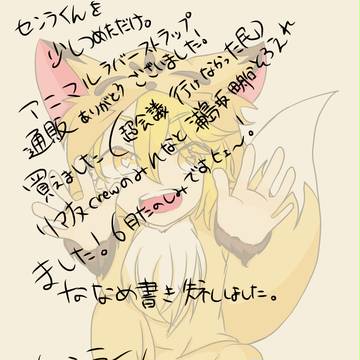 センラくんを
少しつめただけ。
アニマルラバーストラップ
通販ありがとうございました!
買えました〜(超会議行けなかった民)
リアタメcrewのみんなと
浦島坂田船とふえれ
ました!6月たのしみですセェ〜。
ななめ書き失礼しました。
センラくん